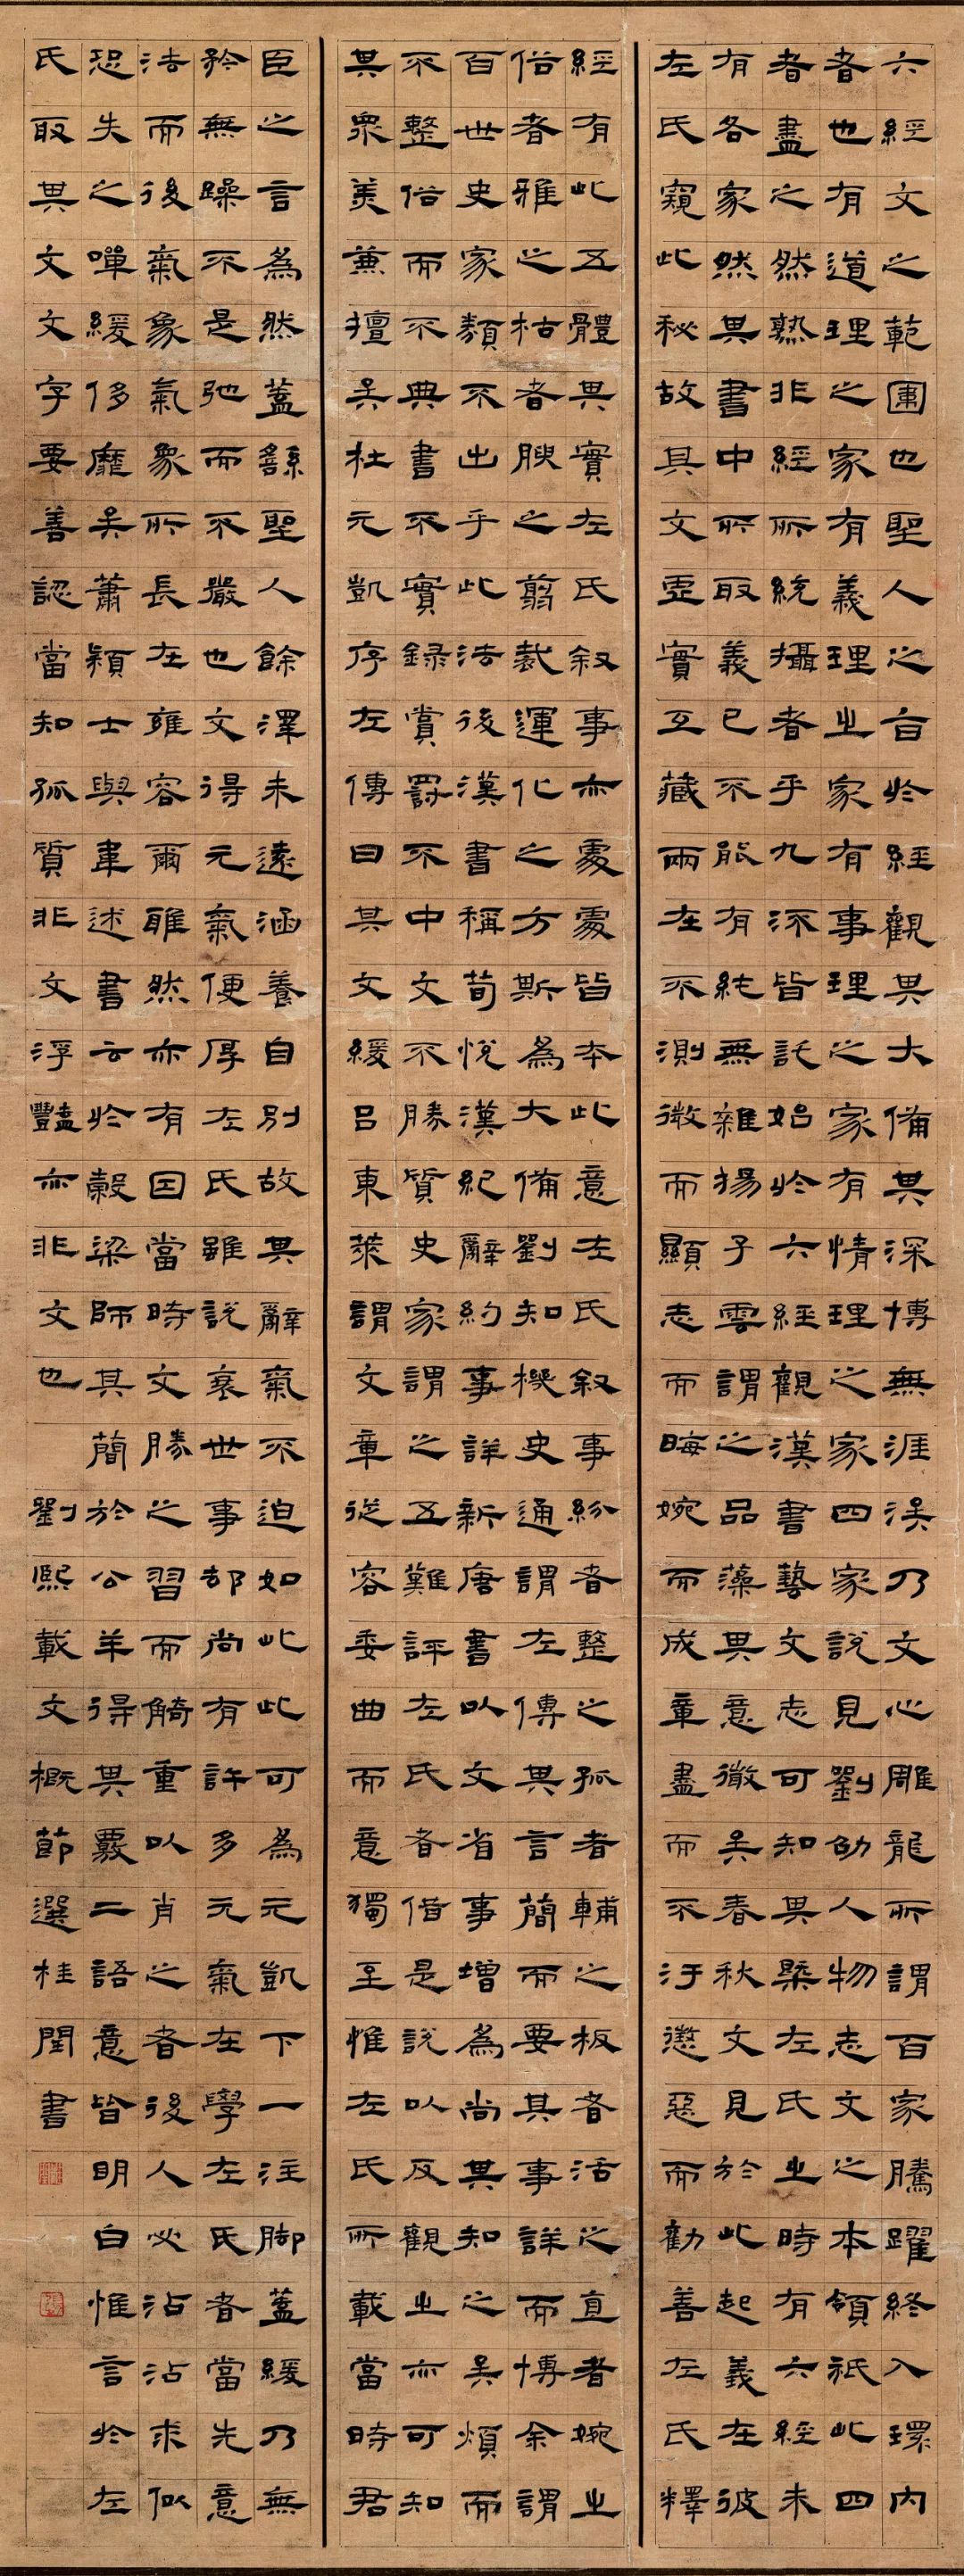 六經文之範圍也聖人之旨於經觀其大備其深博無涯涘乃文心雕龍所謂百家騰躍終入環內
者也有道理之家有義理之家有事理之家有情理之家四家說見劉劭人物志文之本領祇此四
者盡之然熟非經所統攝者乎九流皆託始於六經觀漢書藝文志可知其槩左氏之時有六經未
有各家然其書中所取義已不能有純無雜揚子雲謂之品藻其意微矣春秋文見於此起義在彼
左氏窺此秘故其文虛實互藏兩在不測微而顯志而晦婉而成章盡而不汙懲惡而勸善左氏釋
經有此五體其實左氏叙事亦處處皆本此意左氏叙事紛者整之孤者輔之板者活之直者婉之
俗者雅之枯者腴之翦裁運化之方斯為大備劉知機史通謂左傳其言簡而要其事詳而博余謂
百世史家類不出乎此法後漢書稱荀悅漢紀辭約事詳新唐書以文省事增為尚其知之矣煩而
不整俗而不典書不實録賞罰不中文不勝質史家謂之五難評左氏者借是說以反觀之亦可知
其衆美兼擅矣杜元凱序左傳曰其文緩呂東萊謂文章從容委曲而意獨至惟左氏所載當時君
臣之言為然蓋繇聖人餘澤未遠涵養自別故其辭氣不迫如此此可為元凱下一注脚蓋緩乃無
矜無躁不是弛而不嚴也文得元氣便厚左氏雖說衰世事却尚有許多元氣在學左氏者當先意
法而後氣象氣象所長在雍容爾雅然亦有因當時文勝之習而觭重以肖之者後人必沾沾求似
恐失之嘽緩侈靡矣蕭穎士與韋述書云於穀梁師其簡於公羊得其覈二語意皆明白惟言於左
氏取其文文字要善認當知孤質非文浮豔亦非文也 劉熙載文概節選桂閏書